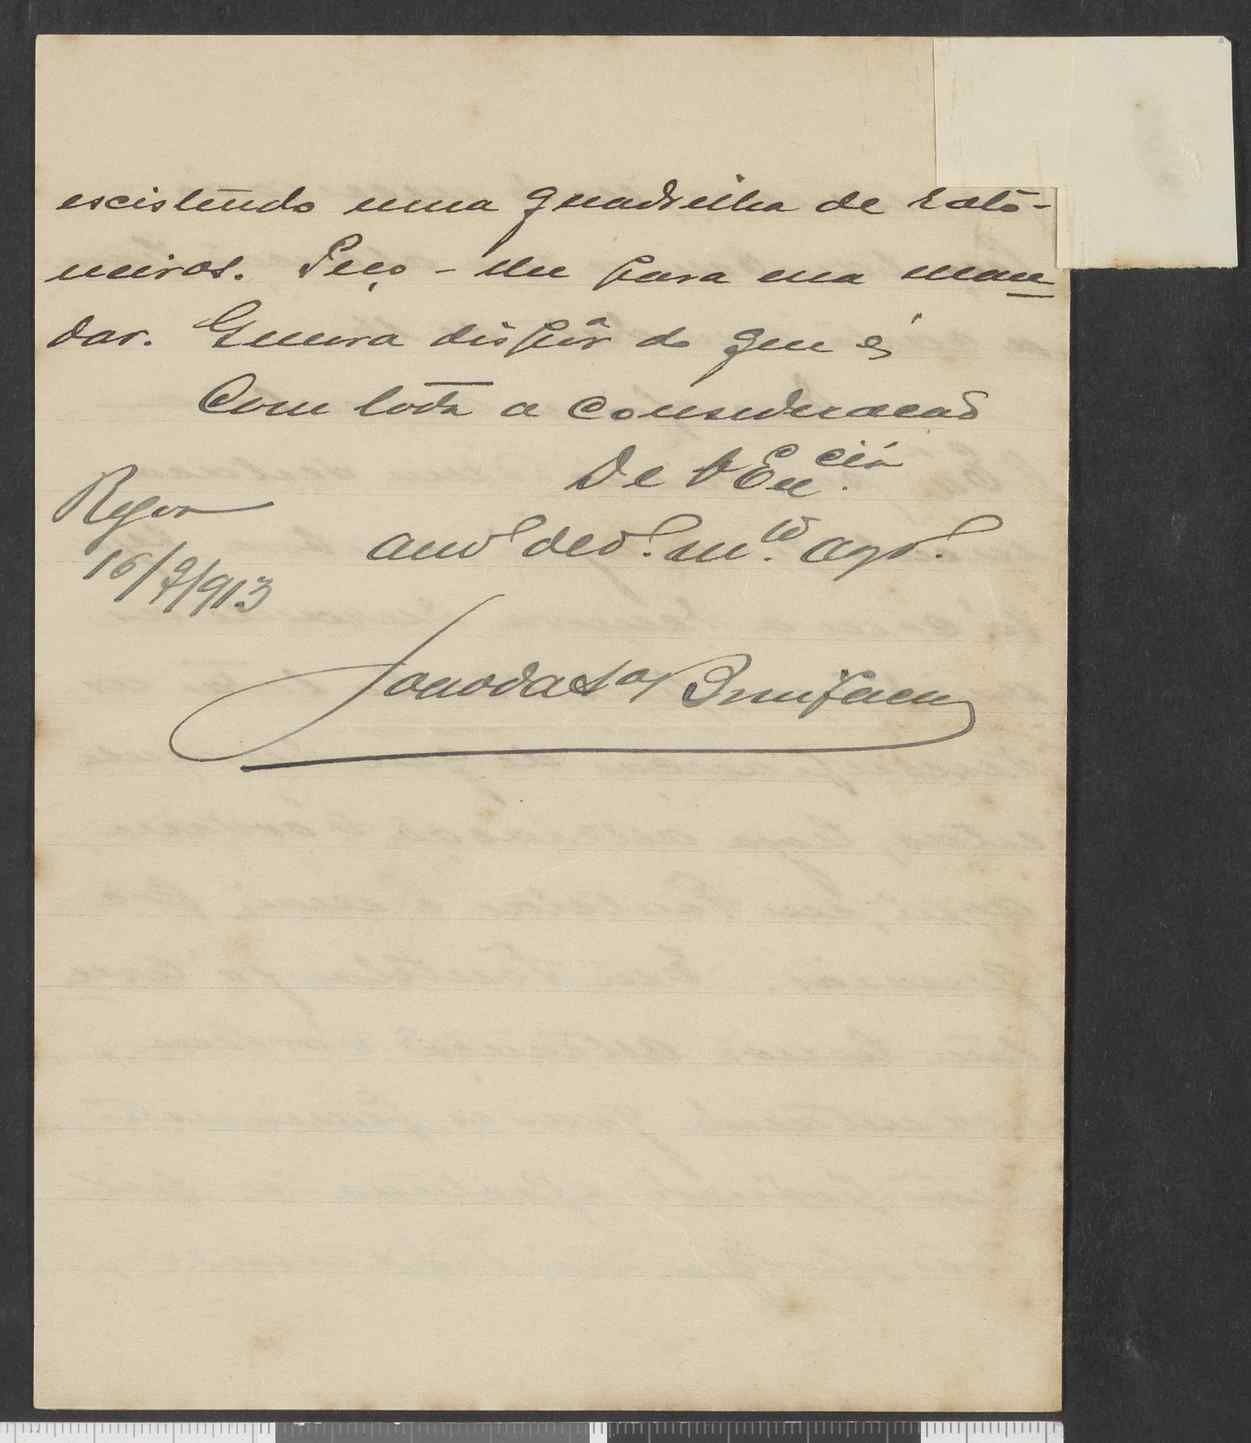 escistindo uma quadrilha de rato-
neiros. Peço-lhe para ma man
dar. Queira dispôr do que é
Com toda a consideracão
De V Ex.cia
amo. dedo. mto. ago.
Regoa
16/9/913
Bonifacio